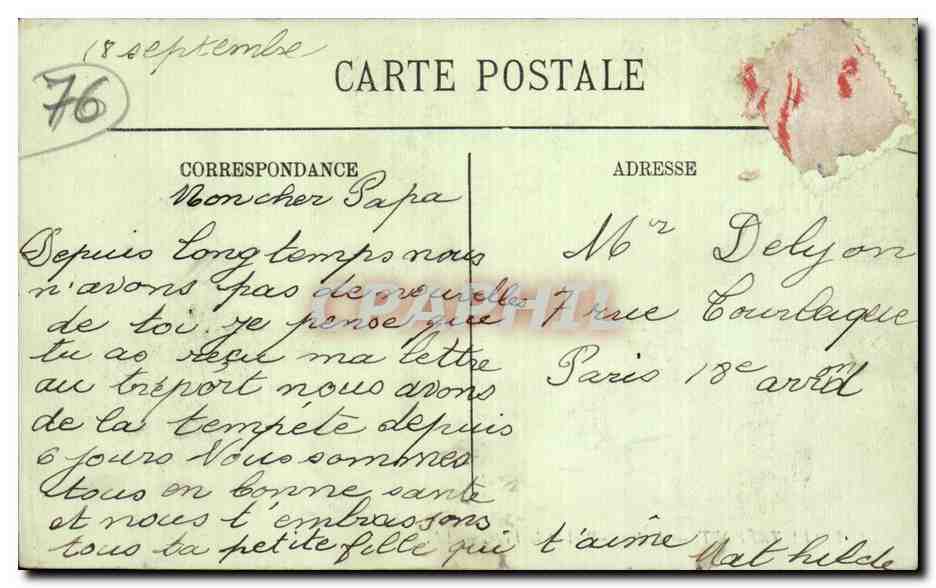 18 septembre
76
CARTE POSTALE
CORRESPONDANCE
ADRESSE
Mon cher Papa
Depuis longtemps nous
n'avons pas de nouvelles
de toi. je pense que
tu as reçu ma lettre
au tréport nous avons
de la tempéte depuis
6 jours Nous sommes
tous en bonne santé
et nous t'embrassons
tous ta petite fille qui t'aîme Mathilde
Mr Delyon
7 rue Tourlaque
Paris 18e arrond
CPAPHIL